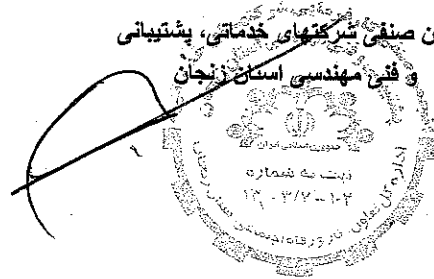 ن صنفی شرکتهای خدماتی، پشتیبانی
و فنی مهندسی استان زنجان
جمهوری اسلامی ایران
ثبت به شماره
اداره کل تعاون، کار و رفاه اجتماعی استان زنجان